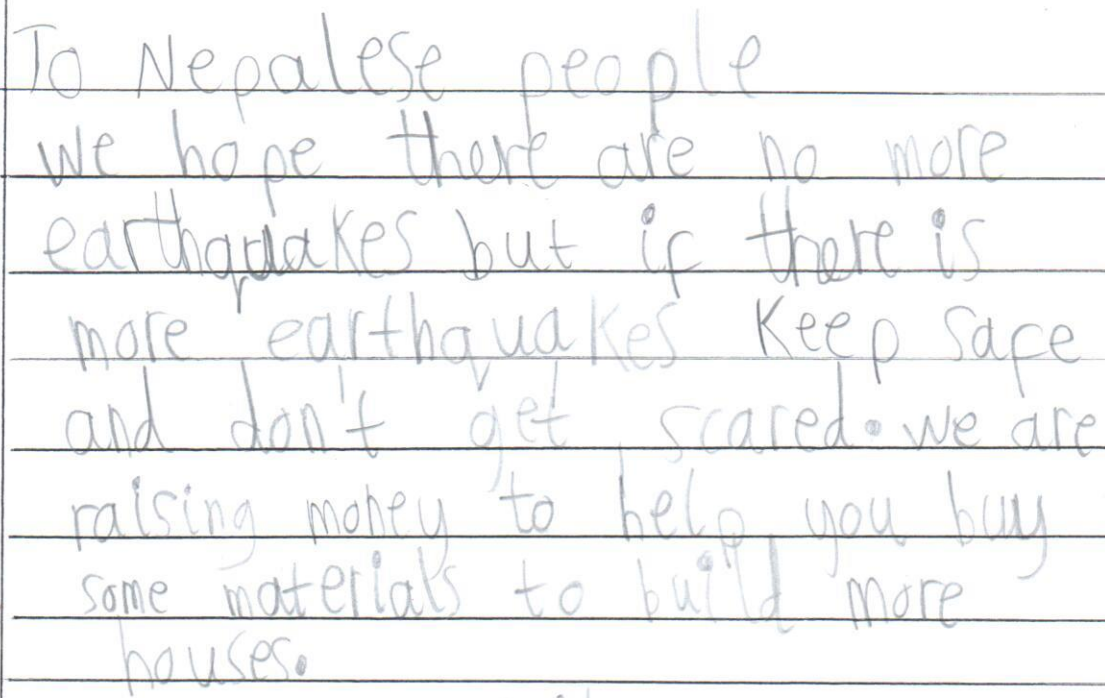 To Nepalese people
we hope there are no more
earthquakes but if there is
more earthquakes keep safe
and don't get scared. we are
raising money to help you buy
some materials to build more
houses.